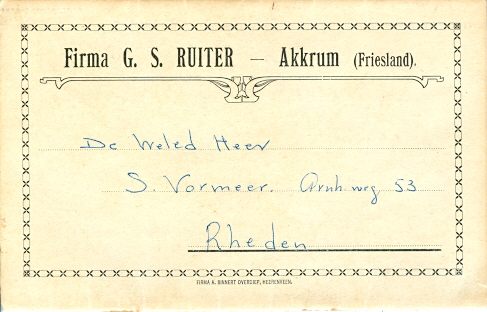 Firma G. S. RUITER — Akkrum (Friesland).
De Weled Heer
S. Vormeer. Arnh. weg 53
Rheden
FIRMA A. BINNERT OVERDIEP, HEERENVEEN.